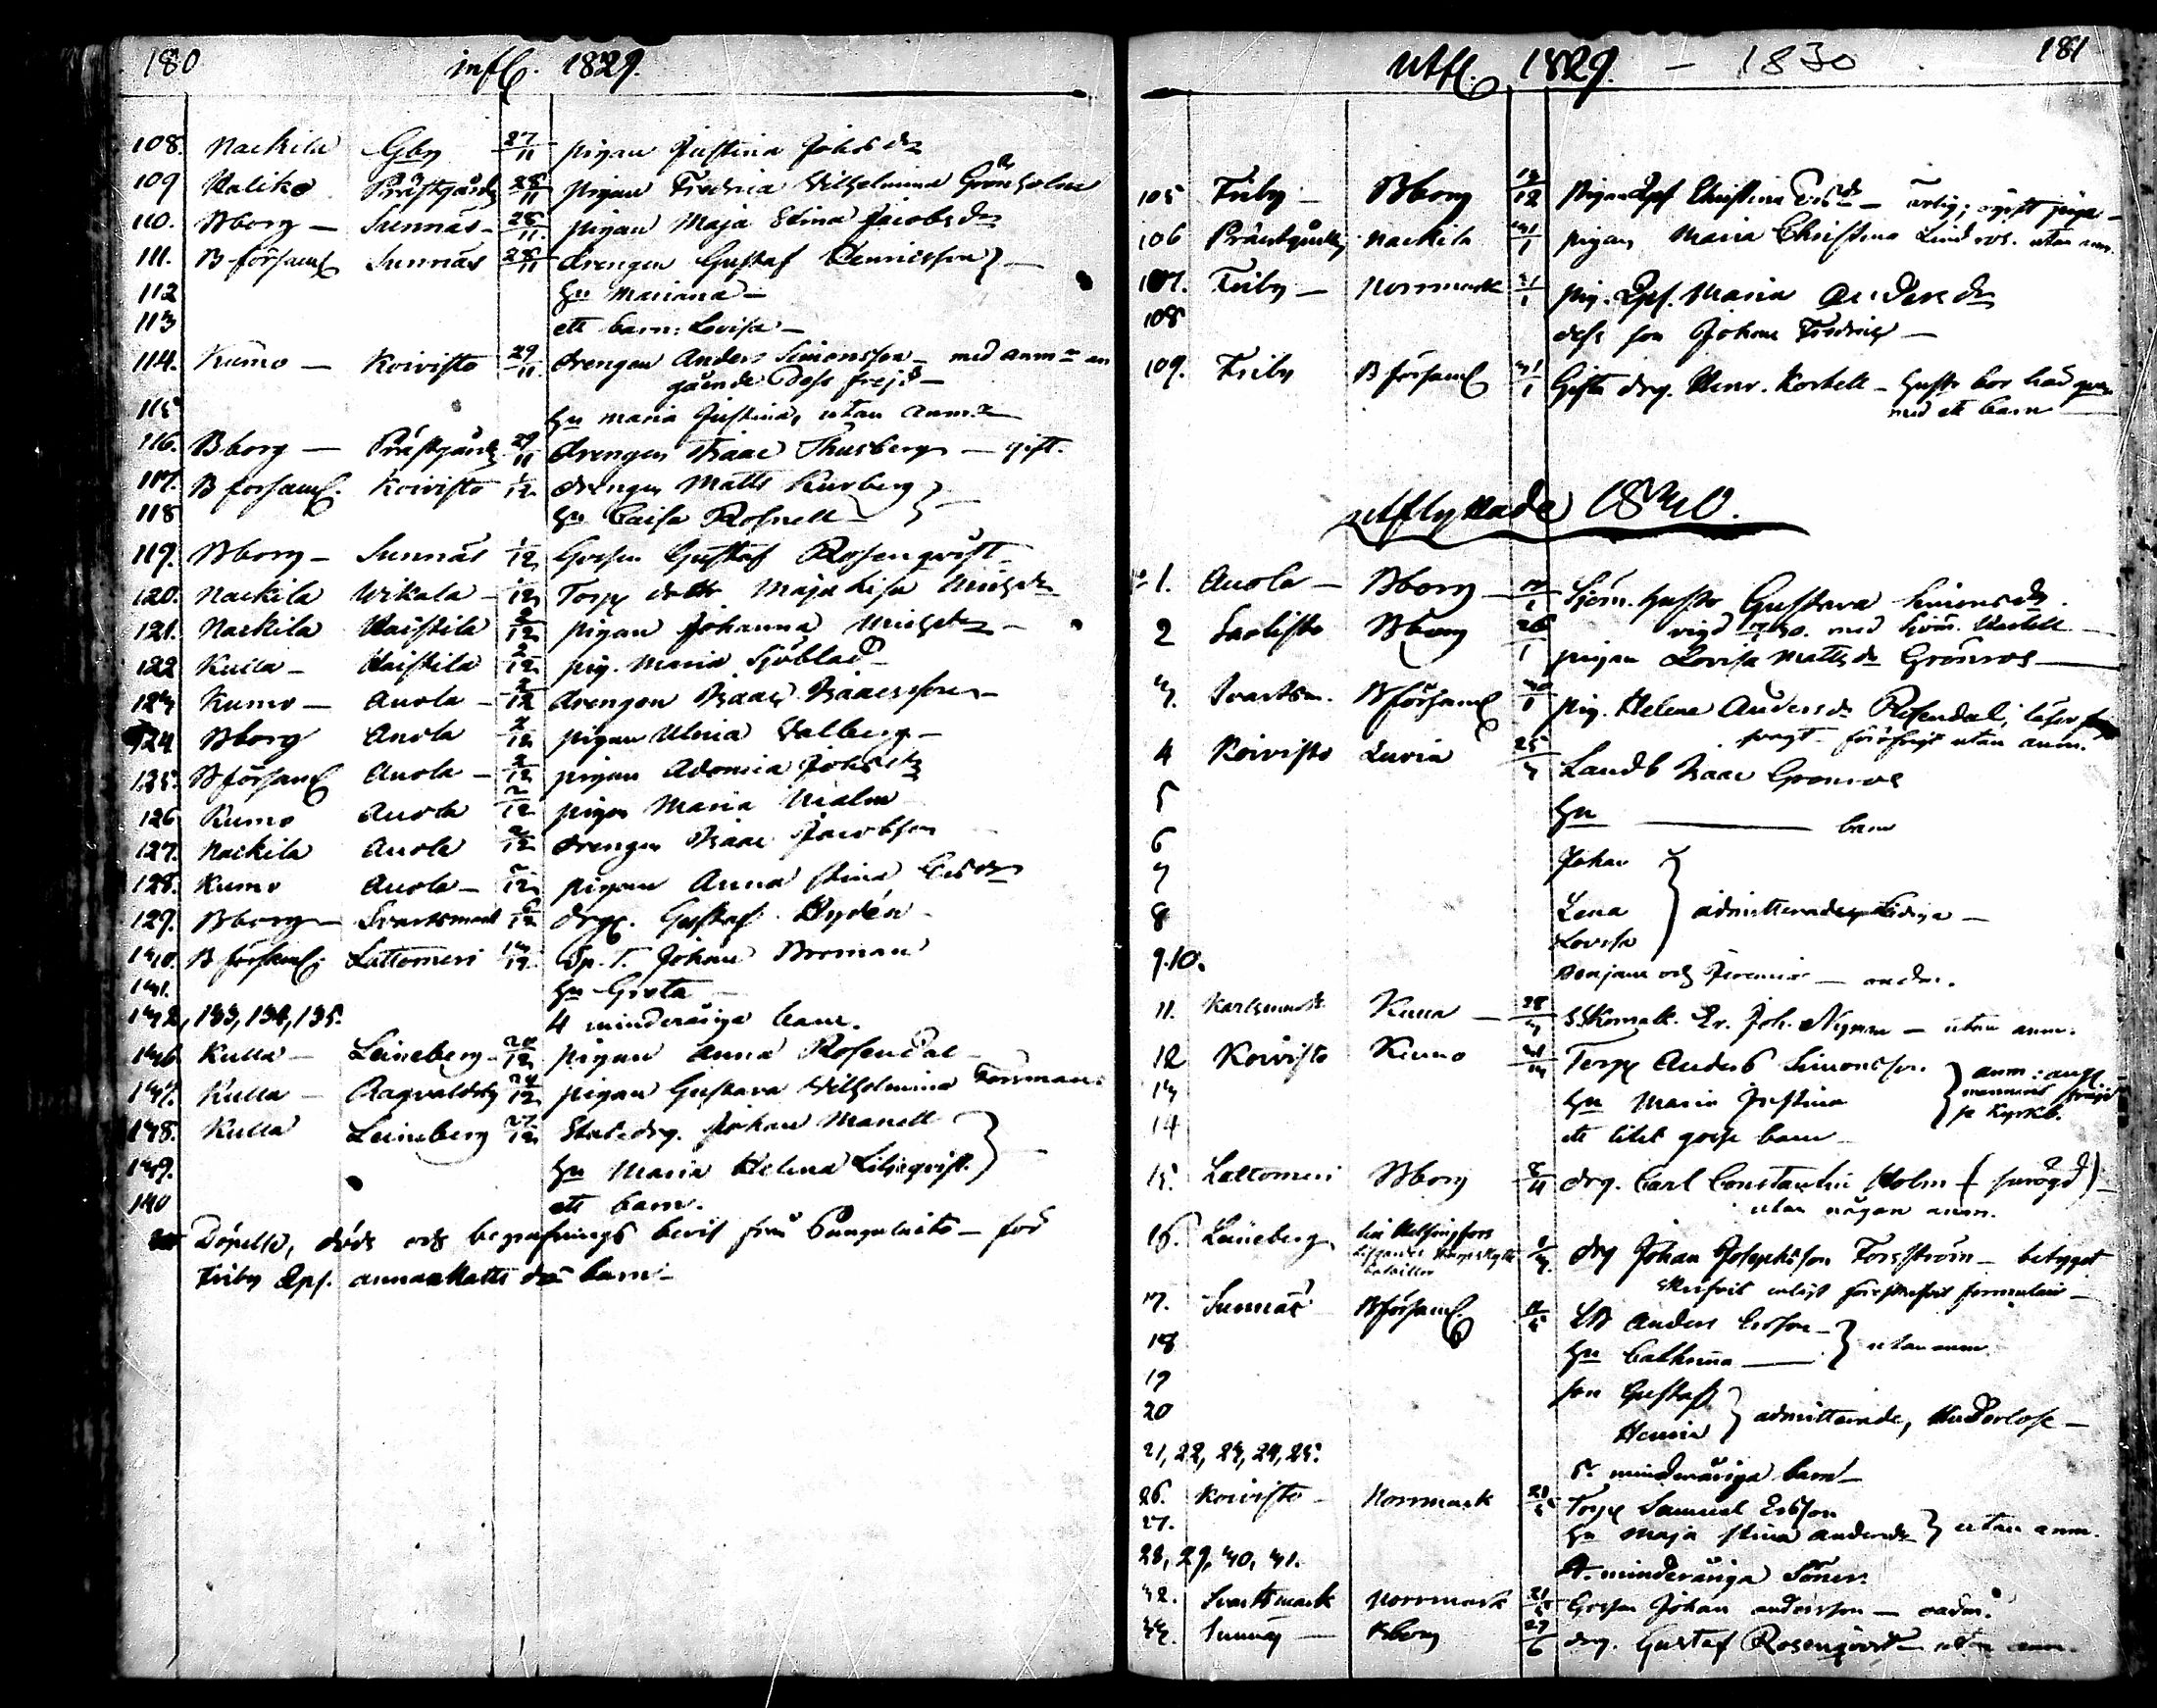 180 infl. 1829.
108. Nackila Gby 27/11 pigan Justina Johsdr
109 Haliko Prästgård 28/11 pigan Fredrica Wilhelmina Grönholm
110. Bborg – Sunnäs – 28/11 pigan Maja Stina Jacobsdr
111. B församl. Sunnäs 28/11 drengen Gustaf Henricsson } –
112 hu Mariana –
113 ett barn: Lovisa –
114. Kumo – Koivisto 29/11 drengen Anders Simonsson – med anm: an
gående dess frejd –
115 hu Maria Justina, utan anm:
116. Bborg – Prästgård 29/11 drengen Isaac Thusberg – gift.
117. B församl. Koivisto 1/12 drengen Matts Kurberg }
118 hu Caisa Rosnell –
119. Bborg – Sunnäs 1/12 Gossen Gustaf Rosenqvist –
120. Nackila Wikala – 1/12 Torp dottr Maja Lisa Michsdr
121. Nackila Haistila 2/12 pigan Johanna Michsdr –
122 Kulla – Haistila 2/12 pig. Maria Sjöblad
123 Kumo – Anola – 2/12 drengen Isaac Isaacsson –
124 Bborg Anola 2/12 pigan Ulrica Valberg –
125. B församl Anola – 2/12 pigan Adamia Johsdr
126 Kumo Anola 2/12 pigan Maria Malm
127. Nackila Anola 2/12 drengen Isaac Jacobsson
128. Kumo Anola – 2/12 pigan Anna Stina Ersdr
129. Bborg – Svartsmark 6/12 drg. Gustaf Rydén –
130. B församl. Lattomeri 13/12 Sp. T. Johan Broman
131. hu Greta –
132, 133, 134, 135. 4 minderåriga barn.
136 Kulla – Leineberg – 20/12 pigan Anna Rosendal –
137. Kulla – Ragvaldsby 24/12 pigan Gustava Wilhelmina Forsman.
138. Kulla Leineberg 27/12 Statsdrg. Johan Manell }
139. hu Maria Helena Liljeqvist. –
140 ett barn.
Döpelse, döds och begrafnings bevis från Pungalaitio – för
Friby Qps. Anna Matts drs barn –
utfl. 1829. – 1830 181
105 Friby – Bborg 13/12 pigan Qps Christina Ersdr – ärlig; ogift piga –
106 Prästgård Nackila 31/1 pigan Maria Christina Lindros. utan anm.
107. Friby – Norrmark 31/1 pig. Qps. Maria Andersdr
108 dess son Johan Fredric –
109. Friby B församl 31/1 Gifta drg. Henr. Korkell – hustr bor här qvar
med ett barn
utflyttade 1830.
1. Anola – Bborg Sjöm. hustr Gustava Simonsdr.
vigd med sjöm.
2 Saaristo Bborg 26/1 pigan Lovisa Mattsdr Grönros –
3. Svartsm. B församl 30/1 pig. Helena Andersdr Rosendal; läser
svagt – föröfrigt utan anm.
4 Koivisto Luvia 25/3 Landb Isaac Grönros
5 hu – barn
6 Johan }
7 Lena admitterade, lediga –
8 Lovisa
9.10. Benjam och Jeremias –
11. Karlsmark Kulla – 28/3 Er. Joh. Nyman – utan anm.
12 Koivisto Kumo 31/3 Torp Anders Simonsson. } anm: ang.
13 hu Maria Justina mannens frejd
14 ett litet gosse barn – se Kyrkb.
15. Lattomeri Bborg 8/4 drg. Carl Constantin Holm –
utan någon anm.
16. Leineberg till Helsingfors drg Johan Josephsson Forsström – betyget
skrifvit enligt föreskrifvit formulair –
17. Sunnäs B församl. Anders Ersson – } utan anm.
18 hu Cathrina –
19 son Gustaf }
20 Henric admitterade, –
21, 22, 23, 24, 25. 5. minderåriga barn –
26. Koivisto – Norrmark Torp Samuel Ersson
27. hu Maja Stina Andersdr } utan anm.
28, 29, 30, 31. 4. minderåriga Söner.
32. Svartsmark Norrmark Gossen Johan Andersson –
33. Sunnäs – Bborg 27/6 drg. Gustaf Rosenqvist – utan anm.